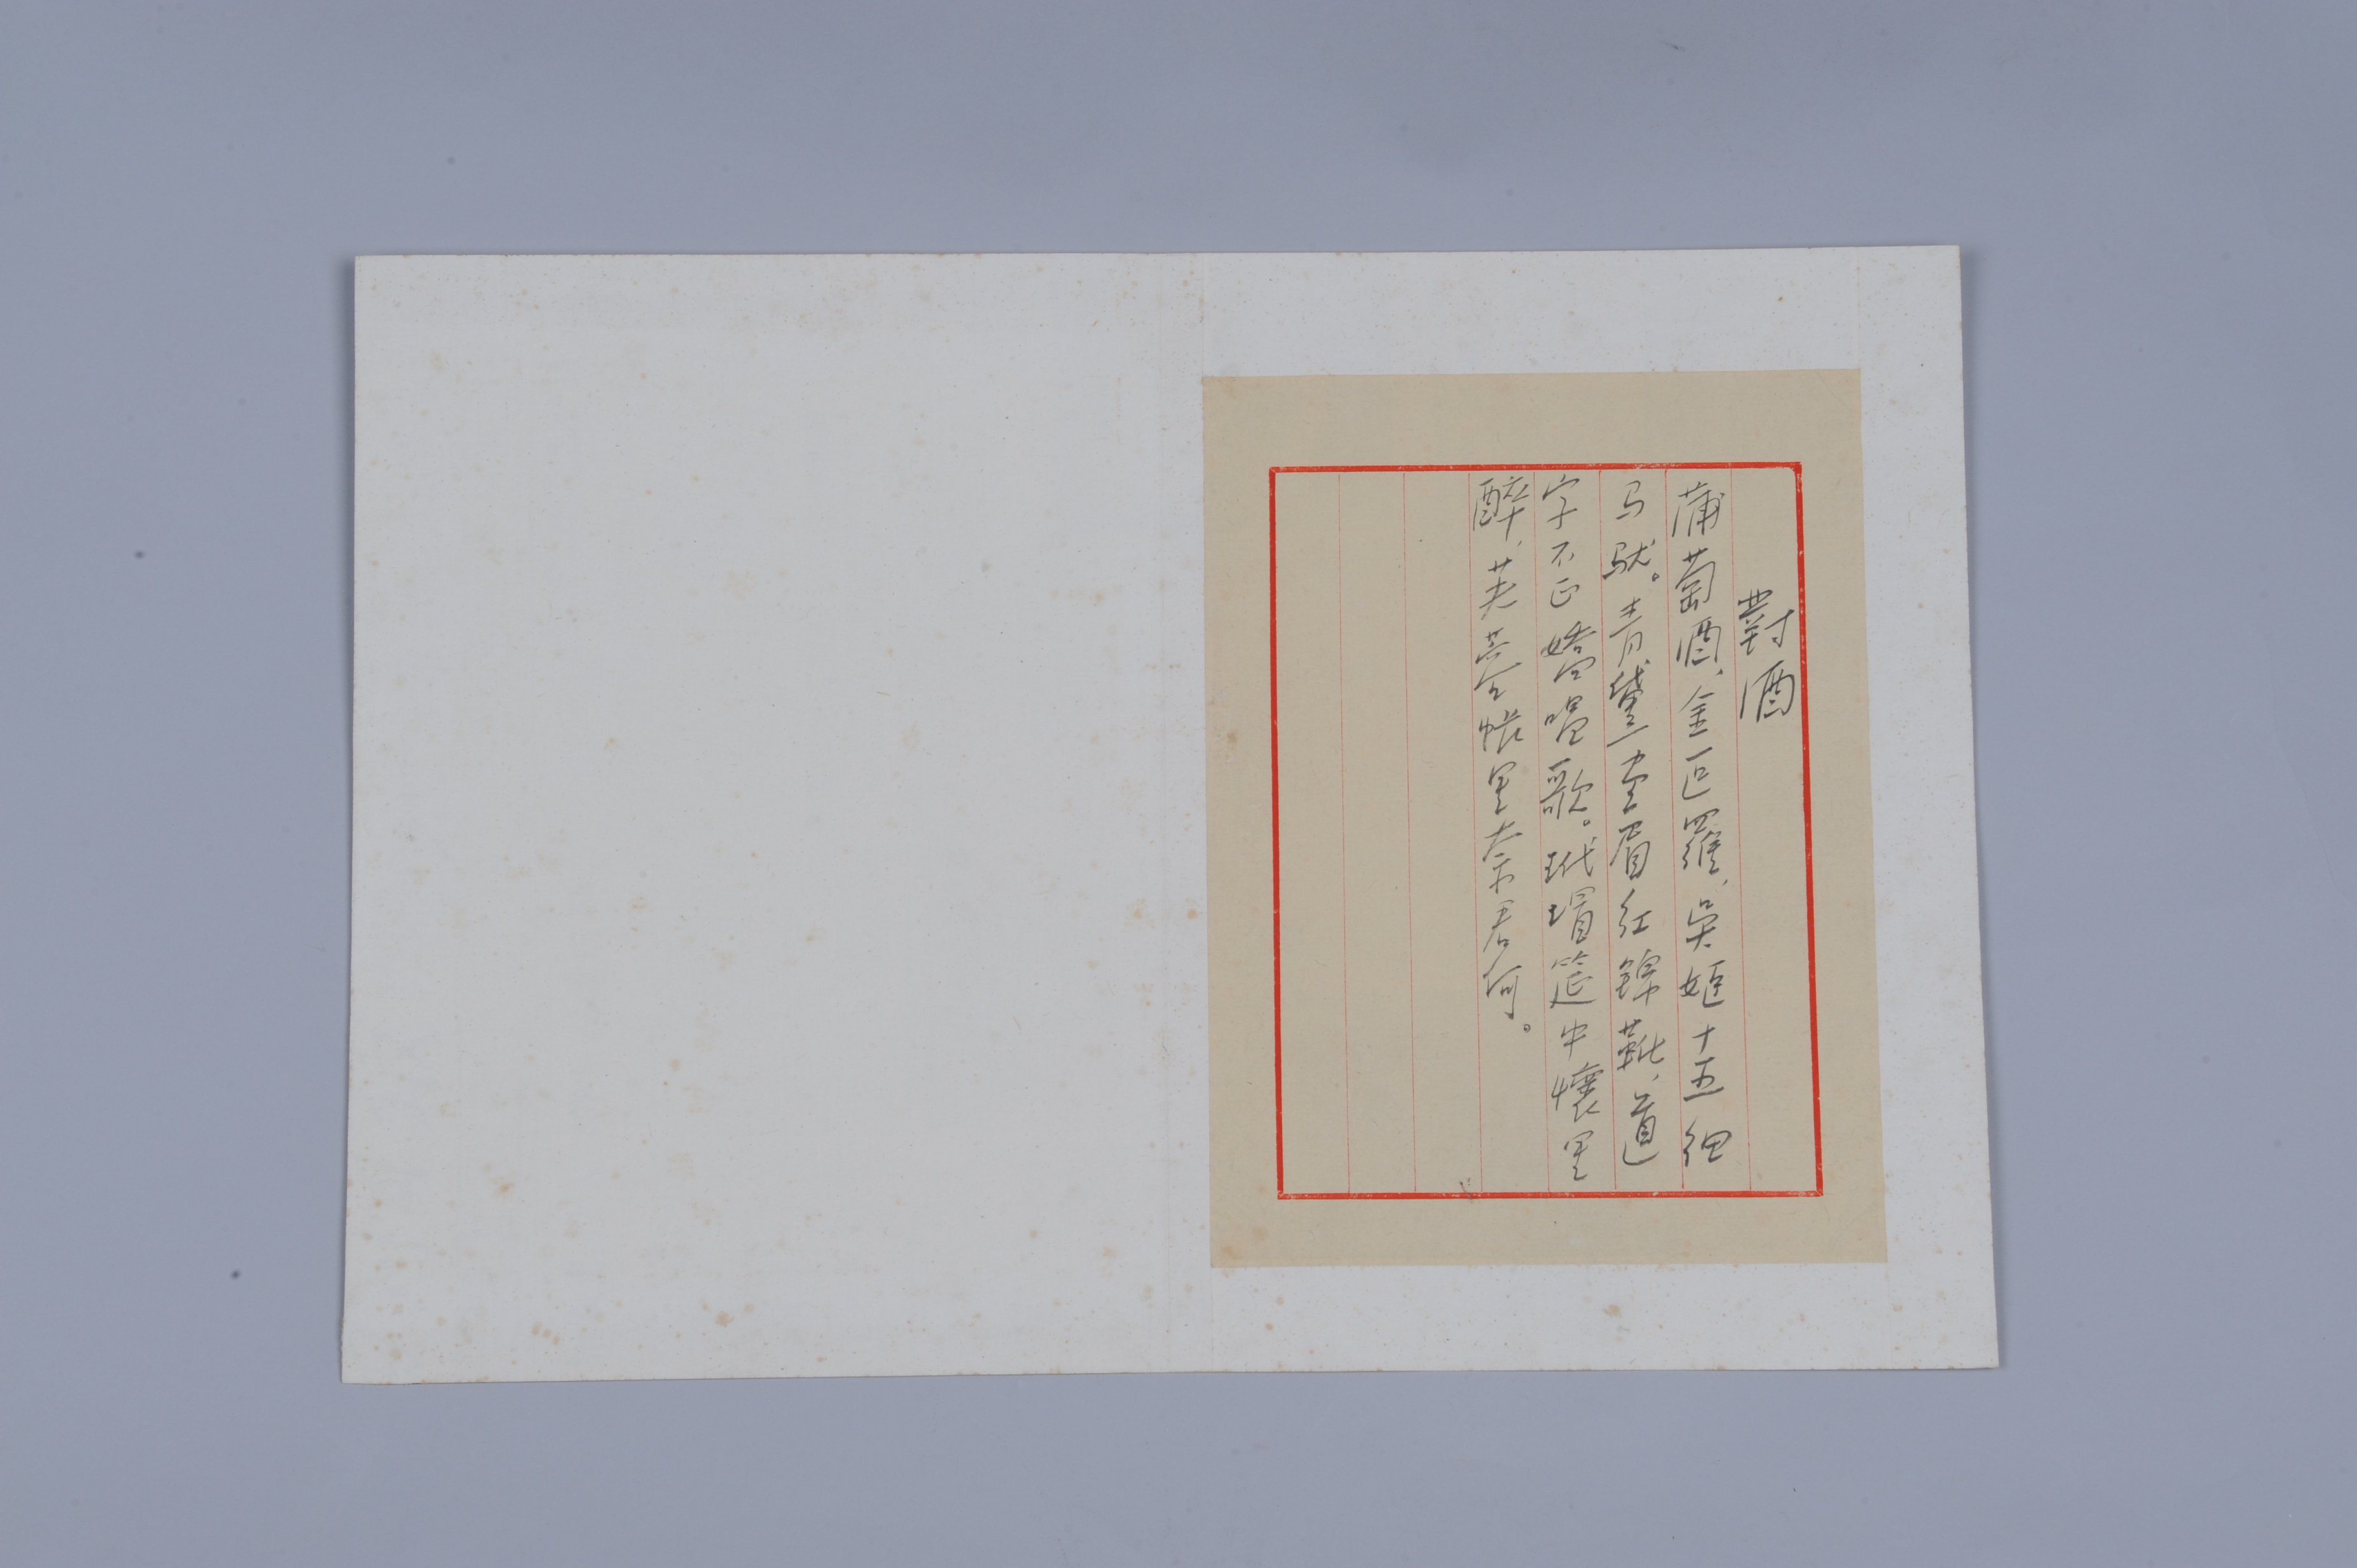 對酒
蒲萄酒、金叵羅，吳姬十五細
马馱。青黛画眉红錦靴，道
字不正嬌唱歌。玳瑁筵中懷里
醉，芙蓉帐里奈君何。